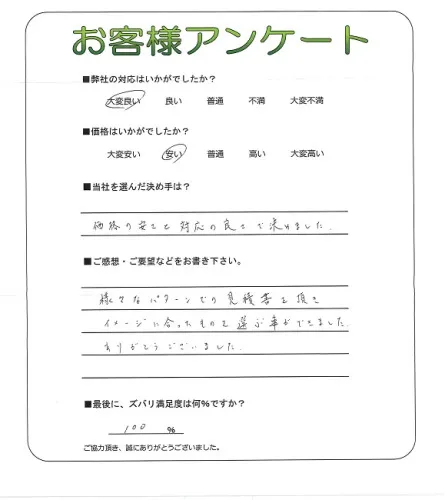 お客様アンケート
■弊社の対応はいかがでしたか?
大変良い 良い 普通 不満 大変不満
■価格はいかがでしたか?
大変安い 安い 普通 高い 大変高い
■当社を選んだ決め手は?
価格の安さと対応の良さで決めました.
■ご感想・ご要望などをお書き下さい。
様々なパターンでの見積書を頂き
イメージに合ったものを選ぶ事ができました.
ありがとうございました.
■最後に、ズバリ満足度は何%ですか?
100 %
ご協力頂き、誠にありがとうございました。